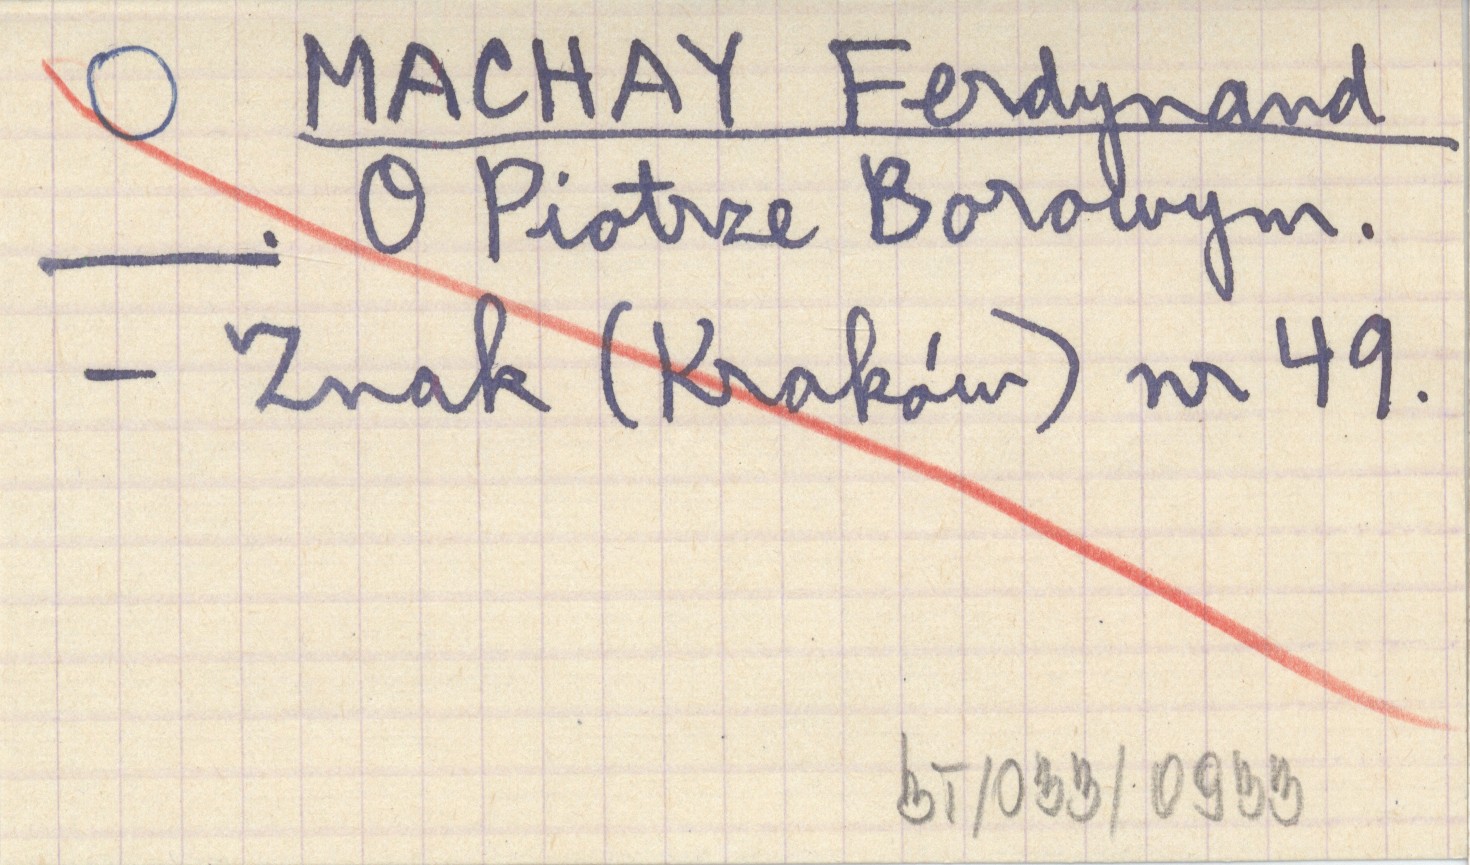 MACHAY Ferdynand
O Piotrze Borowym.
– Znak (Kraków) nr 49.
BT/033/0933